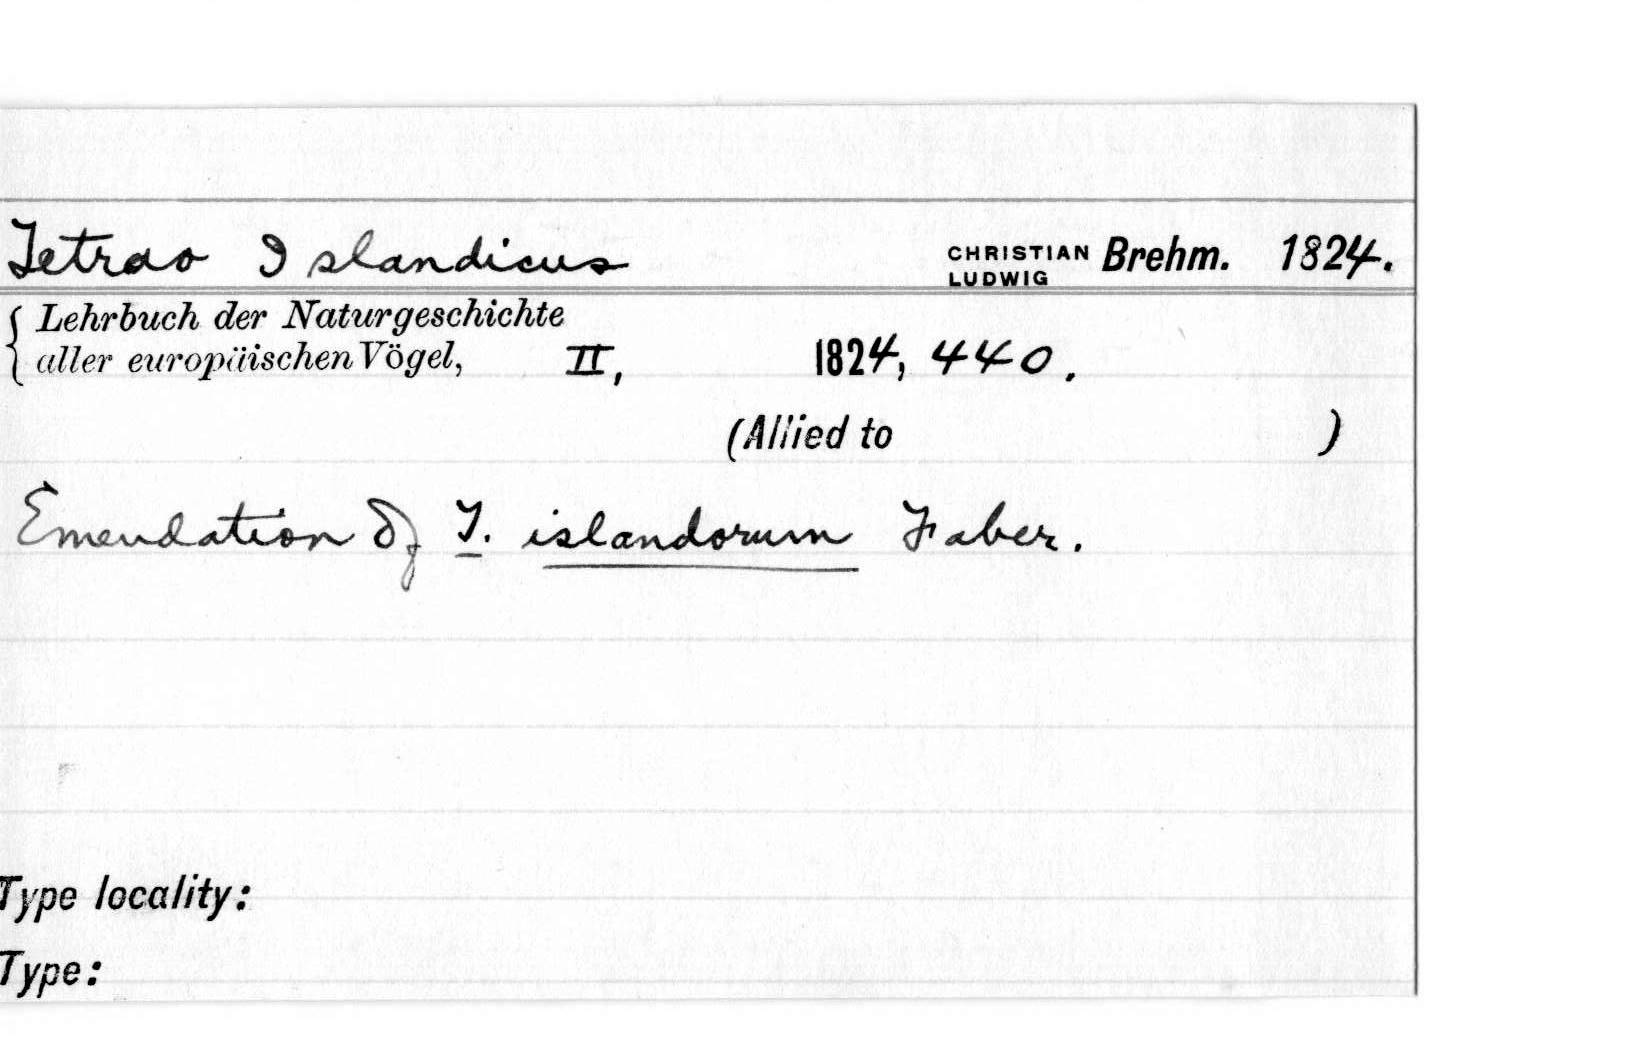 Tetrao Islandicus CHRISTIAN LUDWIG Brehm. 1824.
{ Lehrbuch der Naturgeschichte
aller europäischen Vögel, II, 1824, 440.
(Allied to )
Emendation of T. islandorum Faber.
Type locality:
Type: